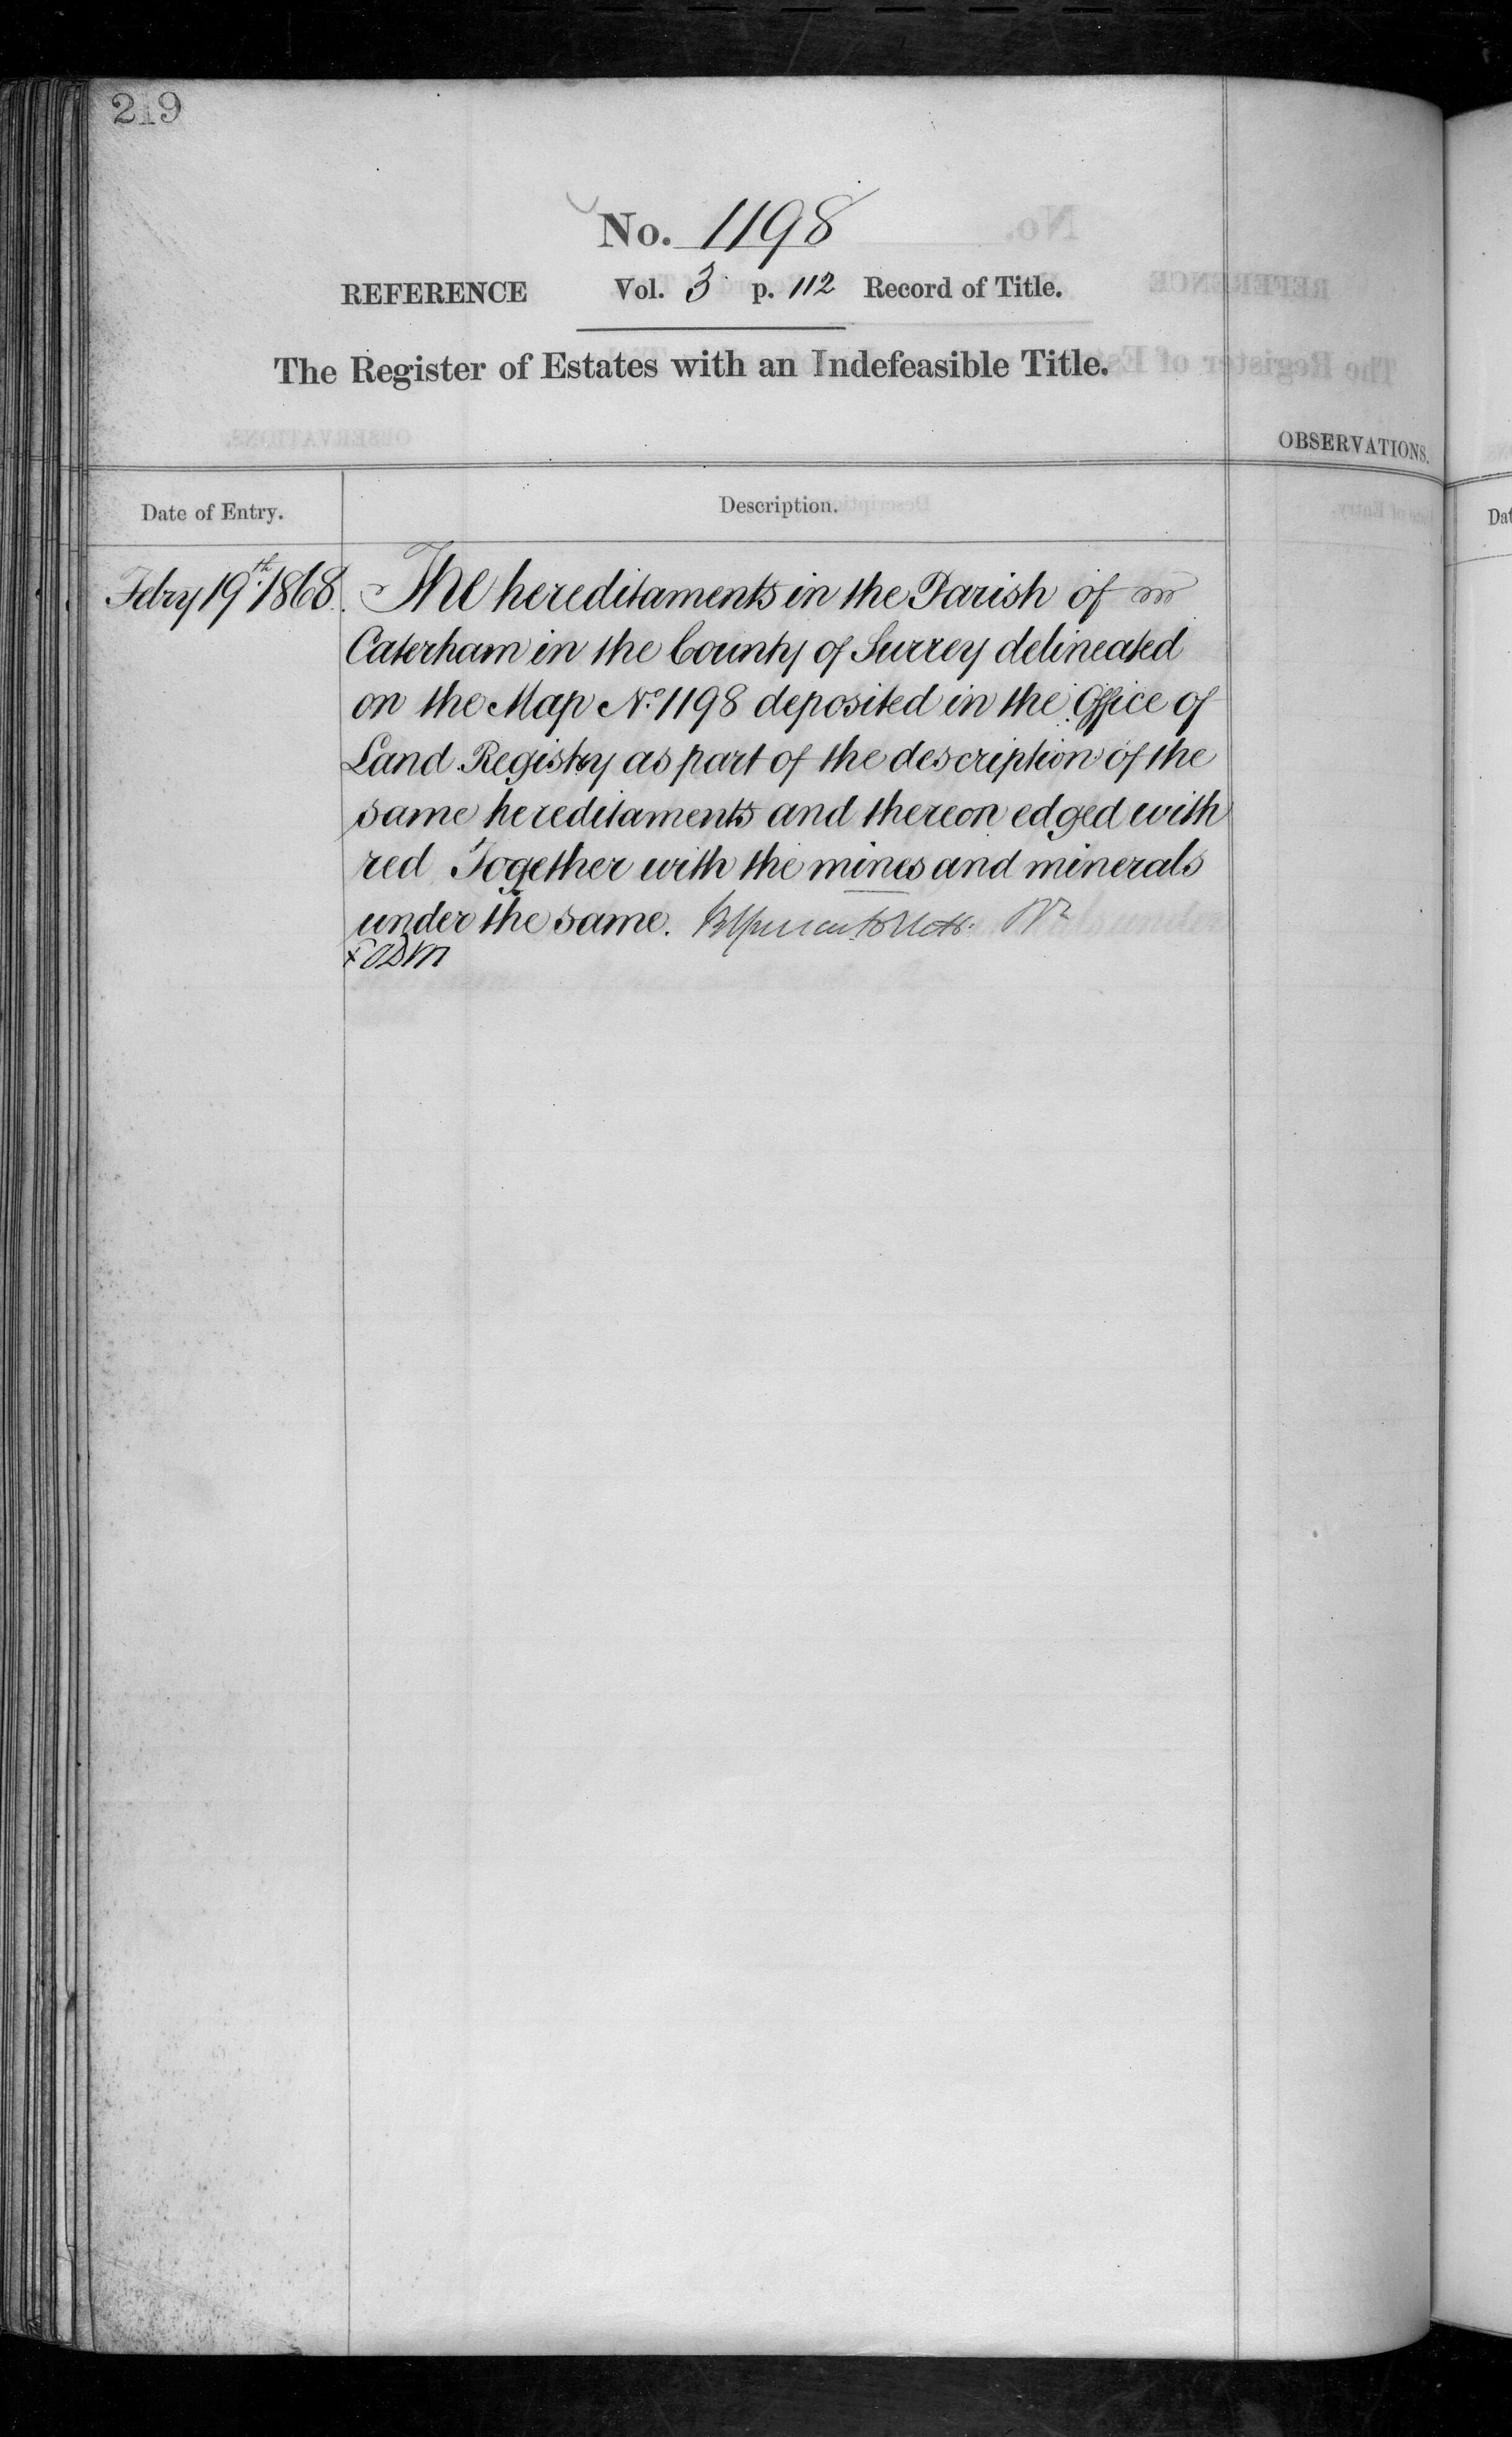 219
No. 1198
REFERENCE Vol. 3 p. 112 Record of Title.
The Register of Estates with an Indefeasible Title.
OBSERVATIONS.
Date of Entry. Description.
Febry 19th. 1868. The hereditaments in the Parish of
Caterham in the County of Surrey delineated
on the Map No. 1198 deposited in the Office of
Land Registry as part of the description of the
same hereditaments and thereon edged with
red Together with the mines and minerals
under the same.
Dat